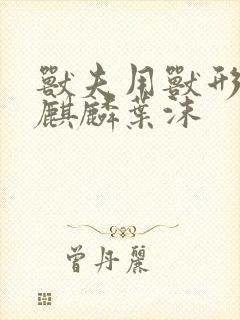 獸夫用獸形
麒麟葉沫
曾丹麗